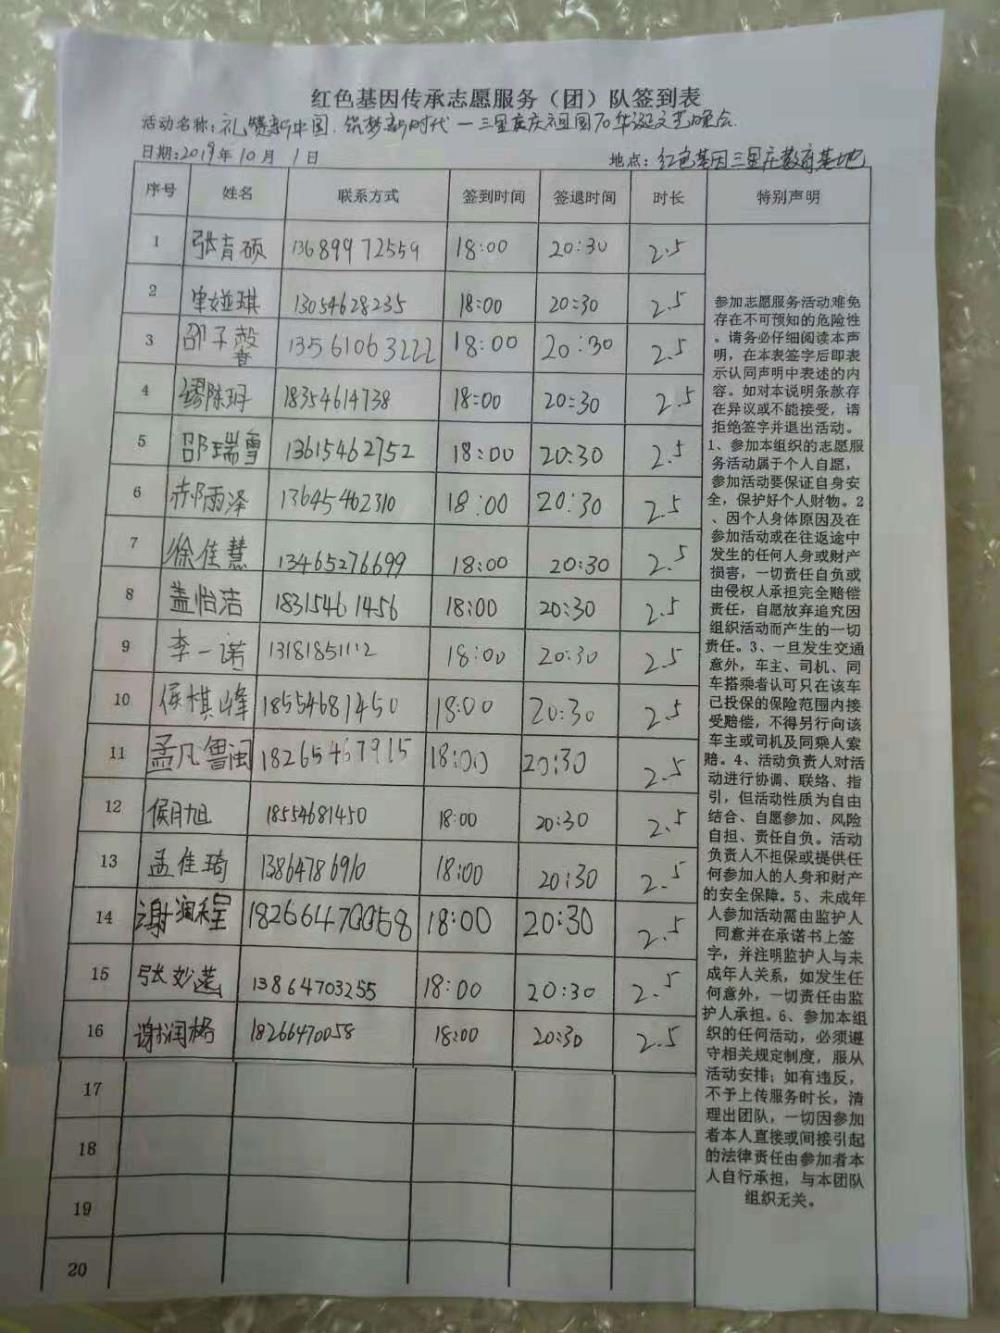 红色基因传承志愿服务（团）队签到表
活动名称：礼赞新中国.筑梦新时代一三里庄庆祖国70华诞文艺晚会.
日期：2019年10月1日 地点：红色基因三里庄教育基地
序号 姓名 联系方式 签到时间 签退时间 时长 特别声明
1 张育硕 13689972559 18:00 20:30 2.5
2 13054628235 18:00 20:30 2.5
3 邵子馨 13561063222 18:00 20:30 2.5
4 18354614738 18:00 20:30 2.5
5 邵瑞雪 13615462752 18:00 20:30 2.5
6 郝雨泽 13645462310 18:00 20:30 2.5
7 徐佳慧 13465276699 18:00 20:30 2.5
8 盖怡洁 18315461456 18:00 20:30 2.5
9 李一诺 13181851112 18:00 20:30 2.5
10 侯棋峰 18554681450 18:00 20:30 2.5
11 孟凡鲁闽 18265467915 18:00 20:30 2.5
12 侯月旭 18554681450 18:00 20:30 2.5
13 孟佳琦 13864786910 18:00 20:30 2.5
14 谢润程 18266470058 18:00 20:30 2.5
15 张妙菡 13864703255 18:00 20:30 2.5
16 谢润格 18266470058 18:00 20:30 2.5
17
18
19
20
参加志愿服务活动难免
存在不可预知的危险性
。请务必仔细阅读本声
明，在本表签字后即表
示认同声明中表述的内
容。如对本说明条款存
在异议或不能接受，请
拒绝签字并退出活动。
1、参加本组织的志愿服
务活动属于个人自愿，
参加活动要保证自身安
全，保护好个人财物。2
、因个人身体原因及在
参加活动或在往返途中
发生的任何人身或财产
损害，一切责任自负或
由侵权人承担完全赔偿
责任，自愿放弃追究因
组织活动而产生的一切
责任。3、一旦发生交通
意外，车主、司机、同
车搭乘者认可只在该车
已投保的保险范围内接
受赔偿，不得另行向该
车主或司机及同乘人索
赔。4、活动负责人对活
动进行协调、联络、指
引，但活动性质为自由
结合、自愿参加、风险
自担、责任自负。活动
负责人不担保或提供任
何参加人的人身和财产
的安全保障。5、未成年
人参加活动需由监护人
同意并在承诺书上签
字，并注明监护人与未
成年人关系，如发生任
何意外，一切责任由监
护人承担。6、参加本组
织的任何活动，必须遵
守相关规定制度，服从
活动安排；如有违反，
不予上传服务时长，清
理出团队，一切因参加
者本人直接或间接引起
的法律责任由参加者本
人自行承担，与本团队
组织无关。